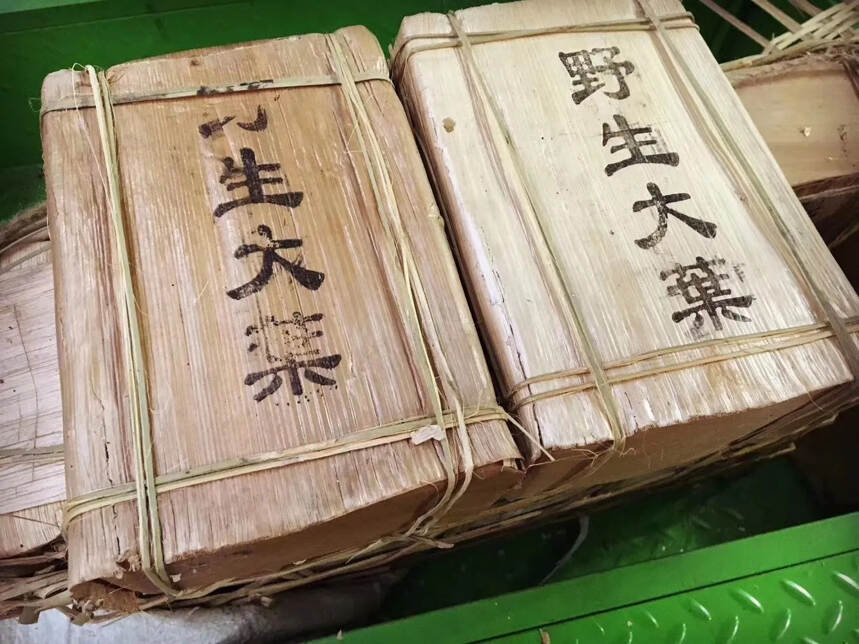 生大葉
野生大葉